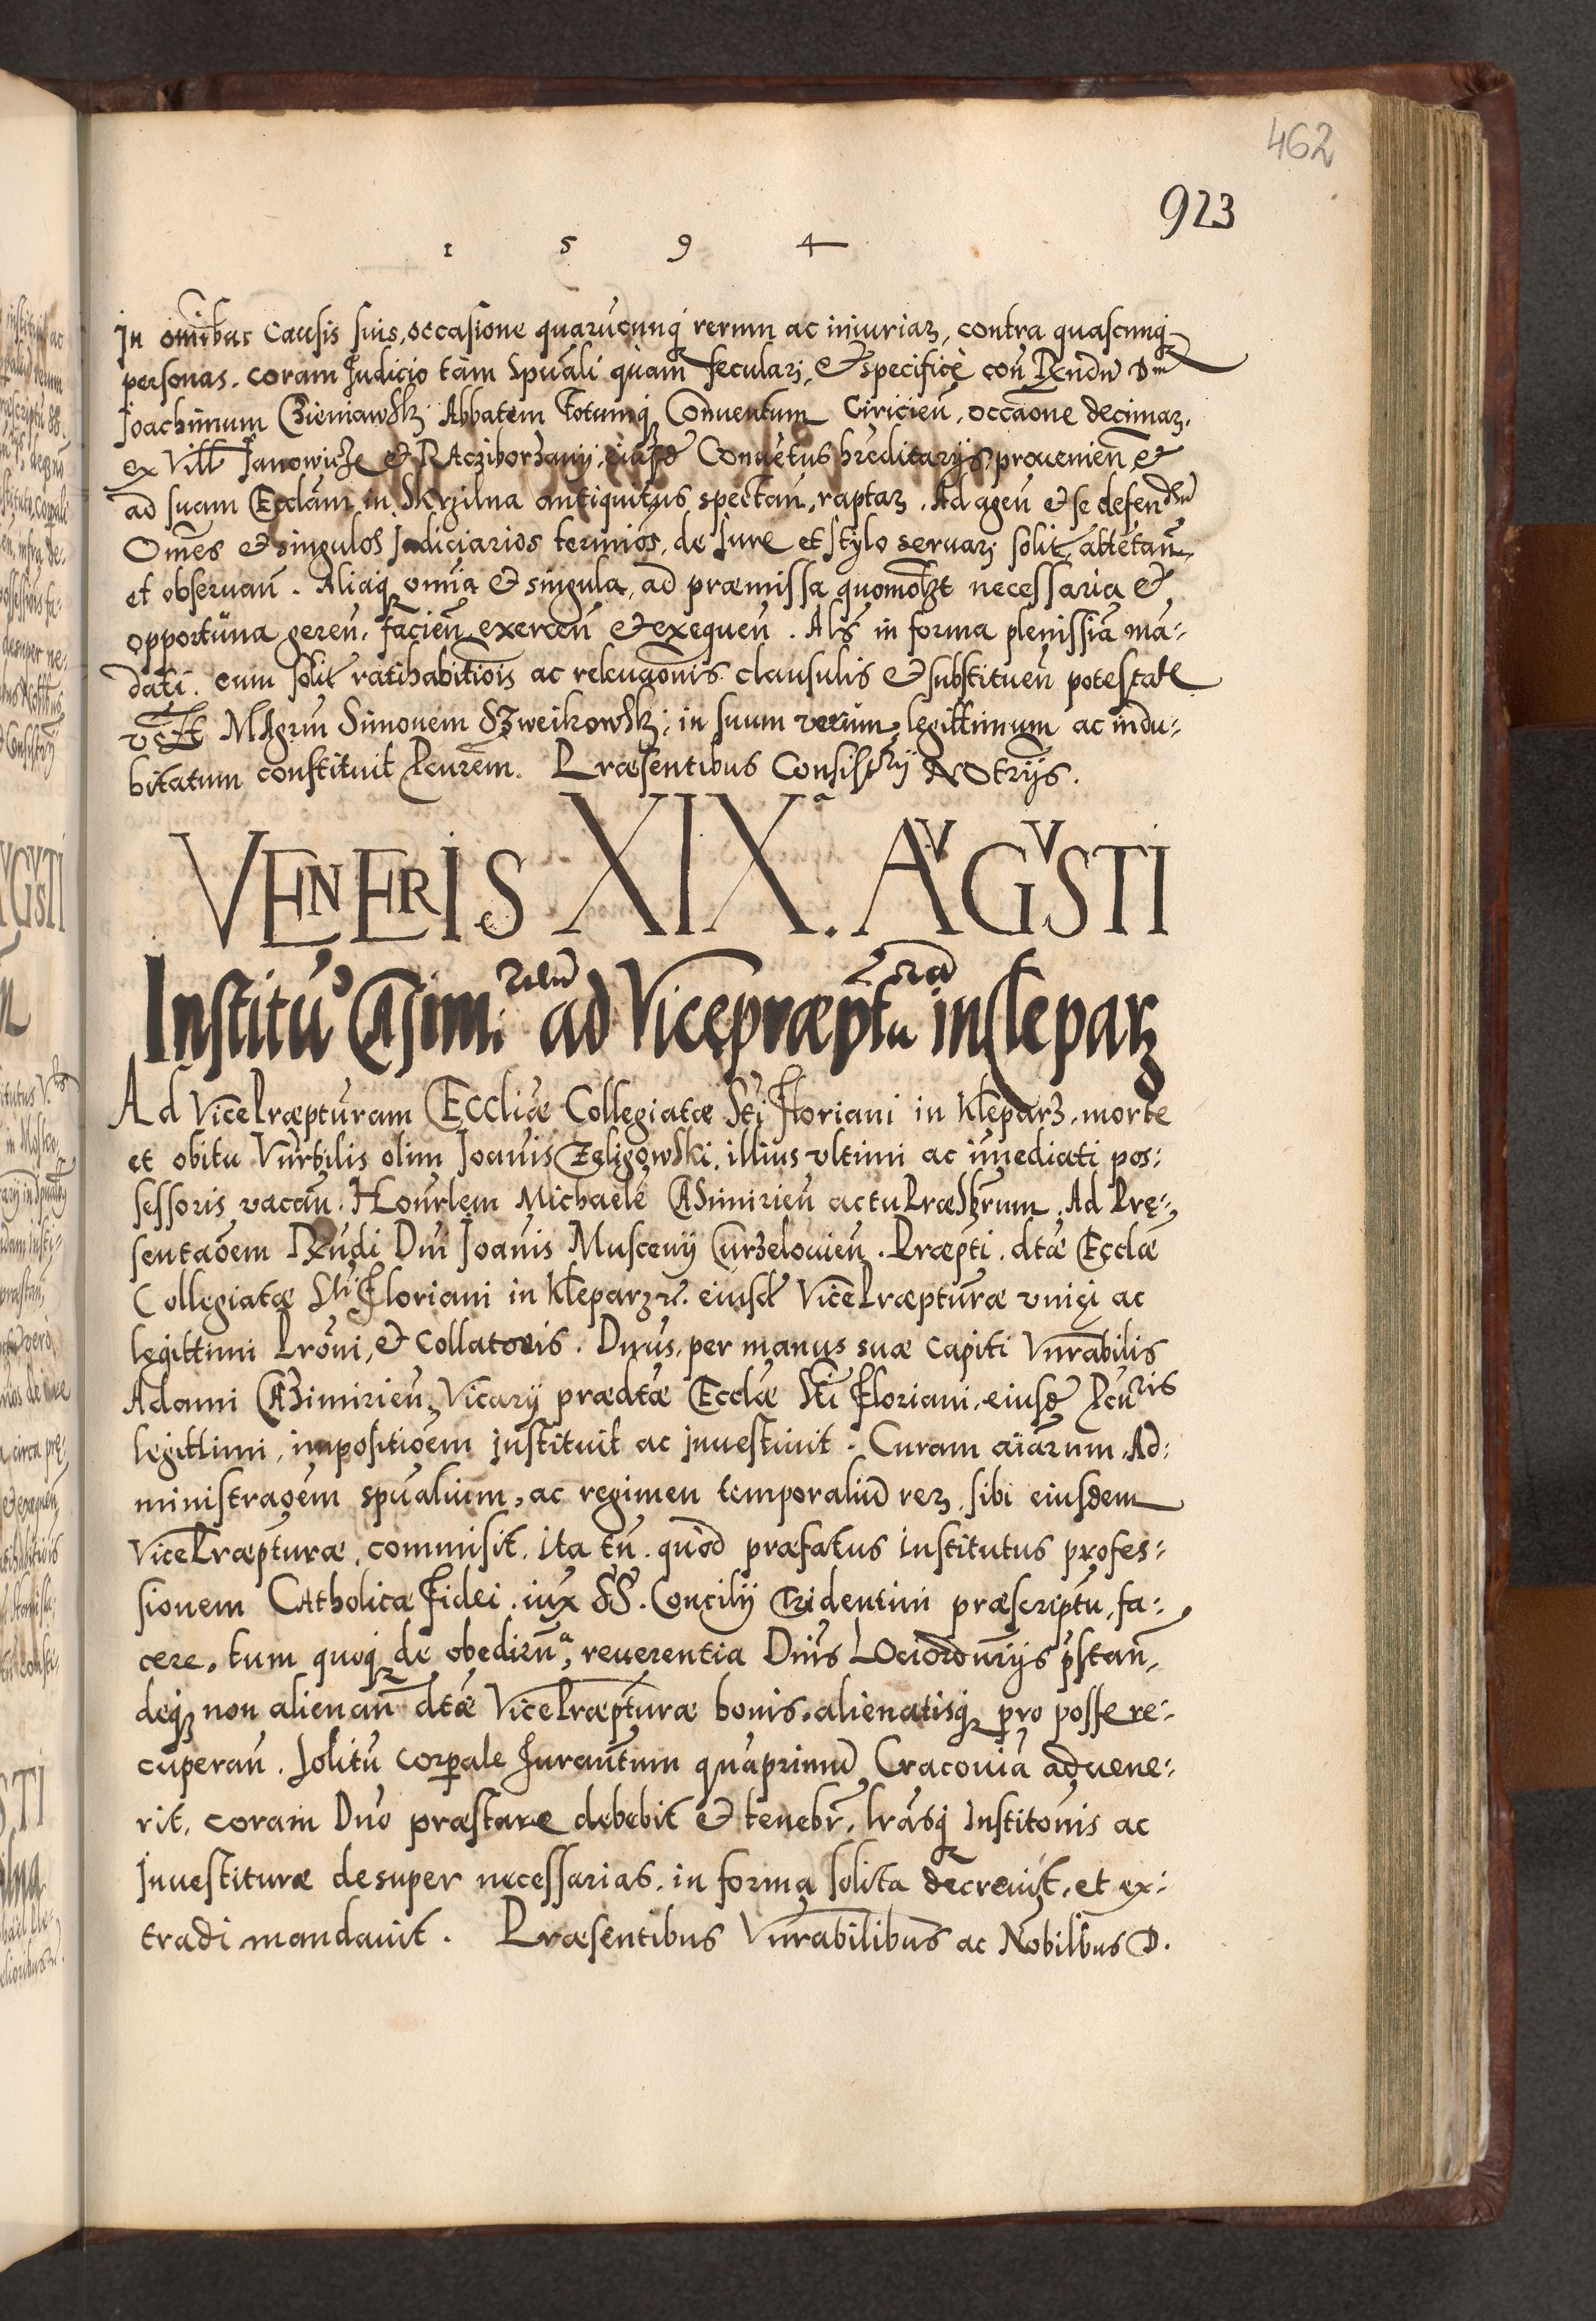 462
923
1 5 9 4
In omibus Causis suis, occasione quarucunq rerum ac iniuriaꝝ, contra quascunq
personas. coram Judicio tam Spuali quam seculari, & specifice con Rndu Dm
Joachimum Czieniawsk: Abbatem Totumq Conuentum Ciricien. occaone decimaꝝ.
ex Vill Janowicze & RAcziborzany, eiusd Conuetus hreditarijs, prouenien &
ad suam Eccłam in Skrzilna antiquitus spectan, raptaꝝ. Ad agen & se defendn
Omes & singulos Judiciarios terminos, de Iure et stylo seruari solit, attetan,
et obseruan. Aliaq omia & singula, ad præmissa quomolzt necessaria &
opportuna geren, facien exercen & exequen. Als in forma plenissia ma:
dati. cum solit ratihabitiois ac releuaonis clausulis & substituen potestate
MAgrm Simonem Szweikowsk: in suum verum, legittimum ac indu:
bitatum constituit Pcurem. Præsentibus Consistrij NOtrijs.
VENERIS XIXa. AVGVSTI
Institu° CAsim:rien ad Vicepræptura in Cleparz
Ad VicePræpturam Eccliæ Collegiatæ Sti Floriani in Kleparz. morte
et obitu Vnrbilis olim Joanis Zeligowski. illius vltimi ac imediati pos:
sessoris vacan. Hounrlem Michaele CASimirien actu Præsbrum. Ad Prę:
sentaoem Rndi Dni Joanis Musceny Curzelouien. Præpti. dtæ Ecclæ
Collegiatæ Sti Floriani in Kleparz rc. eiusd VicePræpturæ vnici ac
legittimi Proni, & Collatoris. Dnus, per manus suæ capiti Vnrabilis
Adami CAZimirien, Vicarij prædtæ Ecclæ Sti Floriani. eiusd Pcuris
legittimi, impositioem instituit ac inuestiuit. Curam aiarum. Ad:
ministraoem spualium, ac regimen temporaliu reꝝ, sibi eiusdem
VicePræpturæ, commisit. ita tn. quod præfatus institutus profes:
sionem CAtholicæ Fidei. iux SS. Concilij Tridentini præscriptu, fa:
cere. tum quoq de obedirna, reuerentia Dnis LOciordnrijs pstan,
deq non alienan dtæ VicePræpturæ bonis. alienatisq pro posse re:
cuperan. Solitu corporale Juramtum quaprimu Cracouia aduene:
rit, coram Dno præstare debebit & tenebr, lrasq Institonis ac
Inuestituræ desuper necessarias. in forma solita decreuit, et ex:
tradi mandauit. Præsentibus Vnrabilibus ac Nobilbus D.